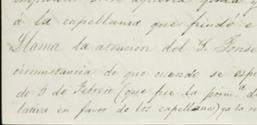 á la capellanía que fundó e
Llama la atención del S. Fonse
circunstancia de que cuando se esp
de 5 de Febrero (que fue la prim.ª d
lativa en favor de los capellanes) ya lo